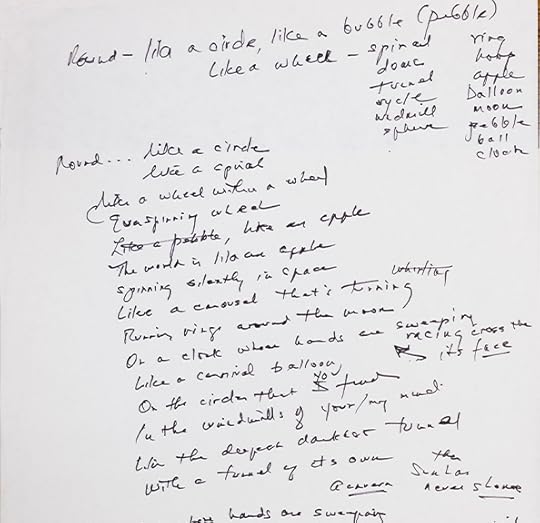 Round — like a circle, like a bubble (pebble)
Like a wheel — spiral ring
dome hoop
tunnel apple
cycle balloon
windmill moon
sphere pebble
ball
clock
Round... like a circle
like a spiral
Like a wheel within a wheel
spinning wheel
Like a pebble, like an apple
The world is like an apple
spinning silently in space
Like a carousel that's turning whirling
Running rings around the moon
Or a clock whose hands are sweeping
Like a carnival balloon racing cross the
its face
On the circles that you find
In the windmills of your/my mind
Like the deepest darkest tunnel
With a tunnel of its own
A cavern the Sun has
never shone
hands are sweeping